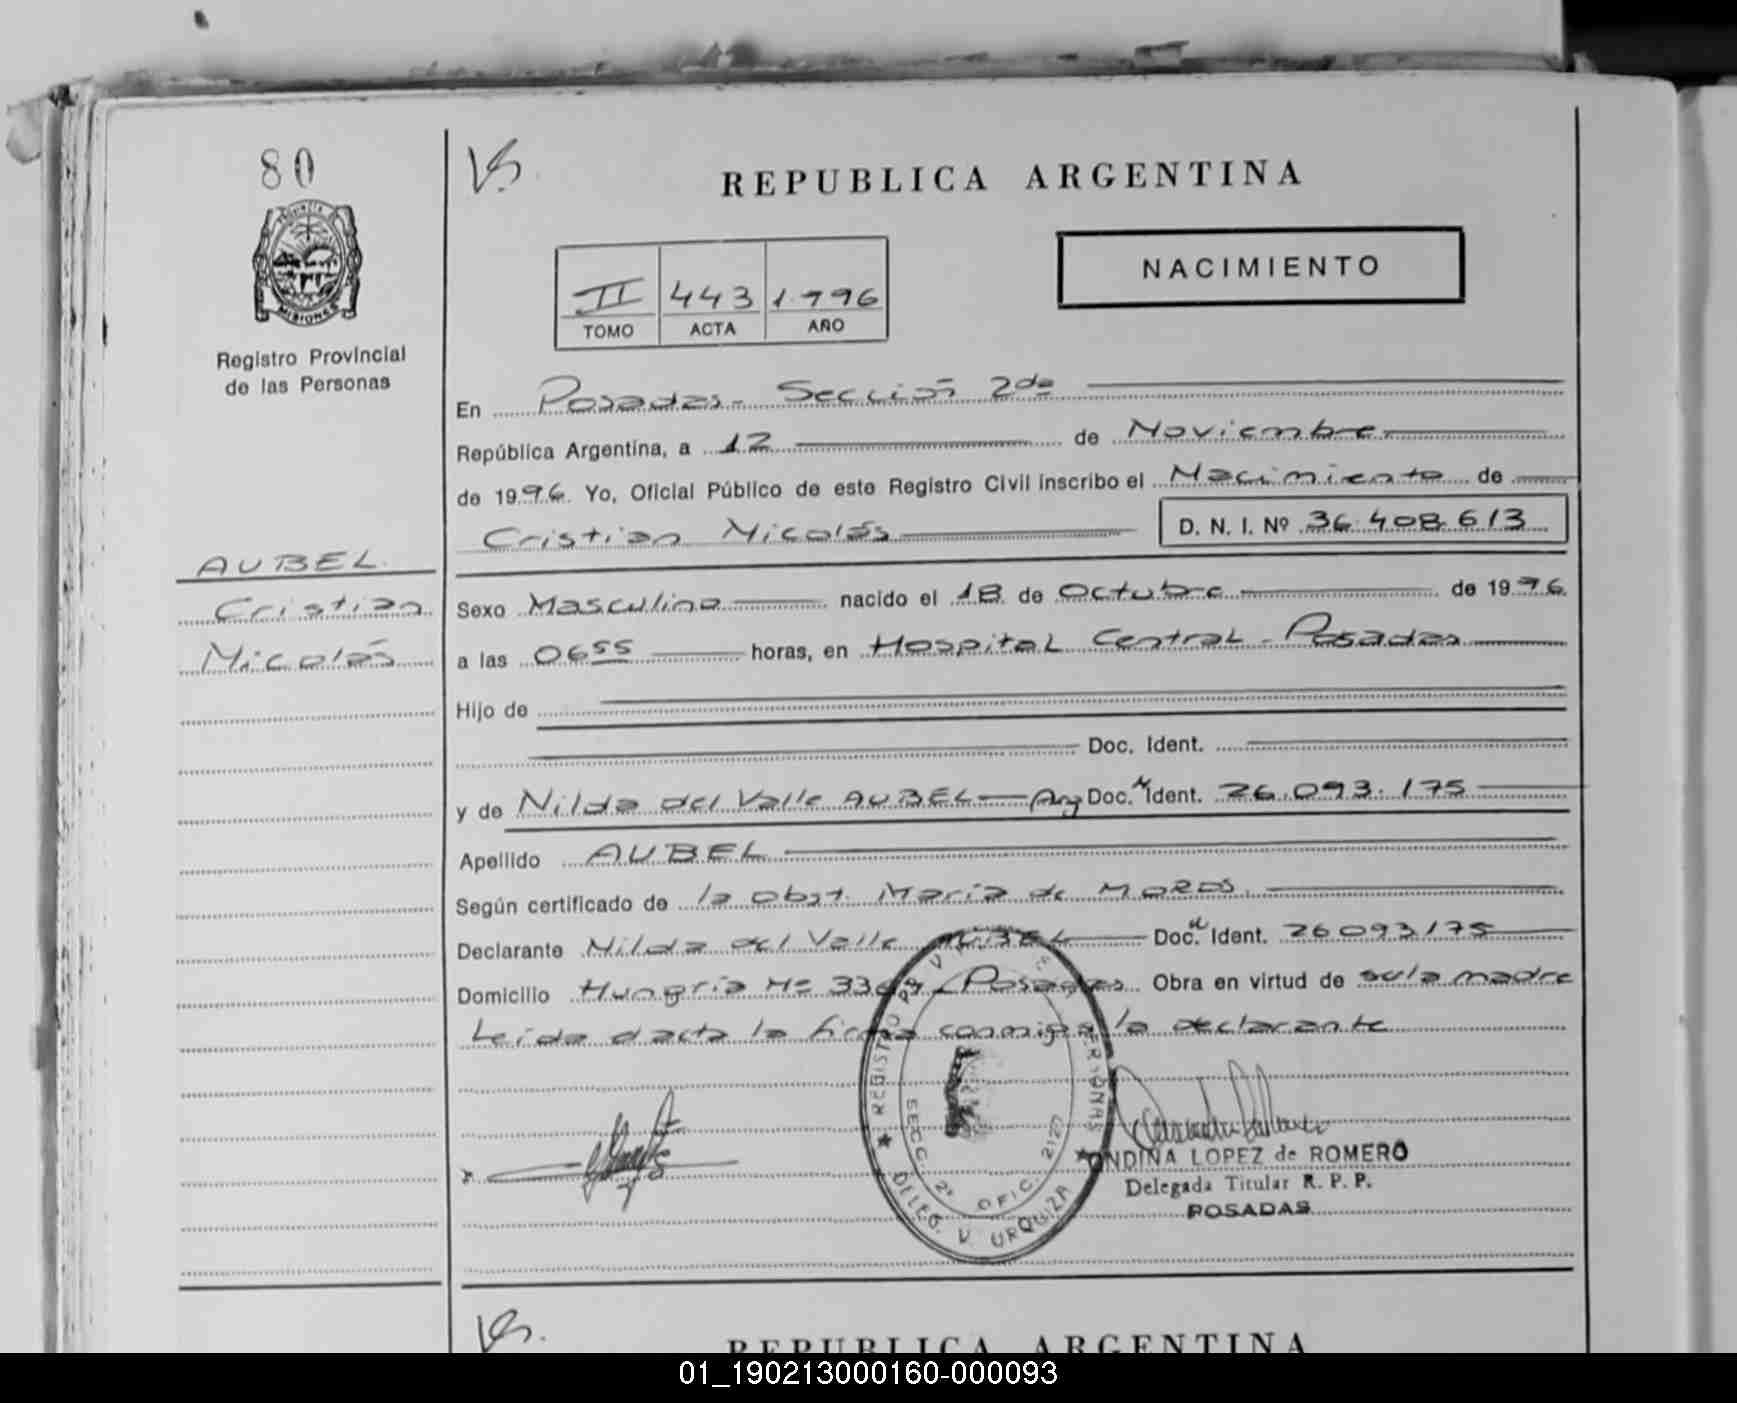 80
PROVINCIA DE
MISIONES
Registro Provincial
de las Personas
AUBEL
Cristian
Nicolás
Vs.
REPUBLICA ARGENTINA
NACIMIENTO
II 443 1.996
TOMO ACTA AÑO
En Posadas - Sección 2da
República Argentina, a 12 de Noviembre
de 1996. Yo, Oficial Público de este Registro Civil inscribo el Nacimiento de
Cristian Nicolás D. N. I. Nº 36.408.613
Sexo Masculino nacido el 18 de Octubre de 1996.
a las 0655 horas, en Hospital Central - Posadas
Hijo de
Doc. Ident.
y de Nilda del Valle AUBEL - Arg Doc. Ident. 26.093.175
Apellido AUBEL
Según certificado de la Obst. María de MOROS
Declarante Nilda del Valle AUBEL Doc. Ident. 26093175
Domicilio Hungría Nº 3369 - Posadas Obra en virtud de ser la madre
Leída el acta la firma conmigo la declarante
REGISTRO PROV. PERSONAS
SECC. 2ª OFIC. 2127
DELEG. V. URQUIZA
ONDINA LOPEZ de ROMERO
Delegada Titular R. P. P.
POSADAS
Vs.
REPUBLICA ARGENTINA
01_190213000160-000093